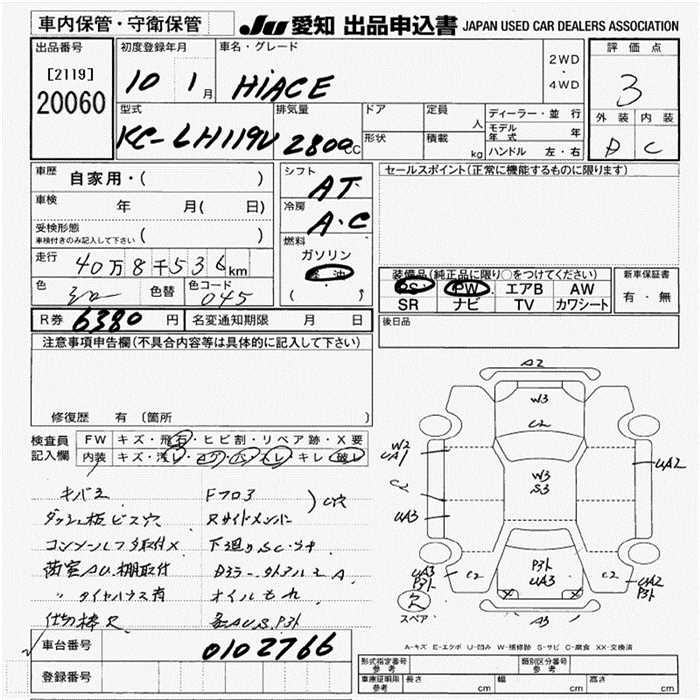 車内保管・守衛保管
JU 愛知 出品申込書 JAPAN USED CAR DEALERS ASSOCIATION
出品番号 初度登録年月 車名・グレード 2WD・4WD 評価点
[2119]
20060 10 1月 HiACE 3
型式 排気量 ドア 定員 人 ディーラー・並行 外装 内装
KC-LH119V 2800cc 形状 積載 kg モデル年式 年 D C
ハンドル 左・右
車歴 自家用・( ) シフト AT セールスポイント(正常に機能するものに限ります)
車検 年 月( 日) 冷房 A・C
受検形態 車検付きのみ記入して下さい ( ) 燃料
走行 40万8千536km ガソリン
軽油
( )
装備品(純正品に限り○をつけてください) 新車保証書
PS PW エアB AW 有・無
SR ナビ TV カワシート
色 シロ 色替 色コード 045
R券 6380円 名変通知期限 月 日 後日品
注意事項申告欄(不具合内容等は具体的に記入して下さい)
修復歴 有 〔箇所
検査員記入欄 FW キズ・飛石・ヒビ割・リペア跡・X要
内装 キズ・汚レ・コゲ・穴・スレ・キレ・破レ
キバミ Fフロア
ダッシュ板ビス穴 Rサイドメンバー
下廻りSC・サ
オイルもれ
仕切棒R
車台番号 0102766
登録番号
A2
W3
C2
W2
UA1
W3
S3
UA2
UA3
UA3
P3ト
C2
P3ト
UA3
C2
UA2
P3ト
スペア
A3
A-キズ E-エクボ U-凹み W-補修跡 S-サビ C-腐食 XX-交換済
形式指定番号 参考 類別区分番号 参考
車庫証明用 参考 長さ cm 幅 cm 高さ cm